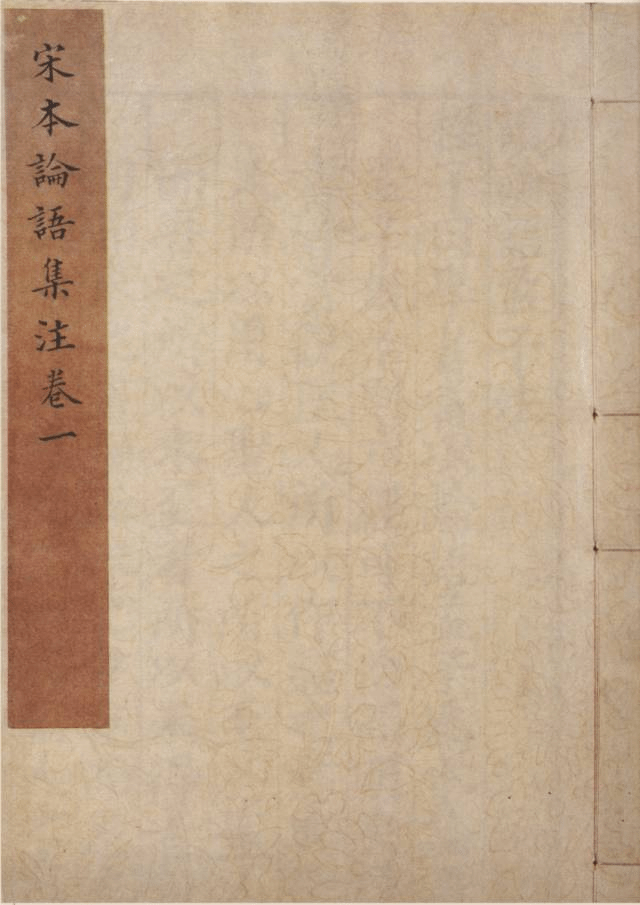 宋本論語集注卷一